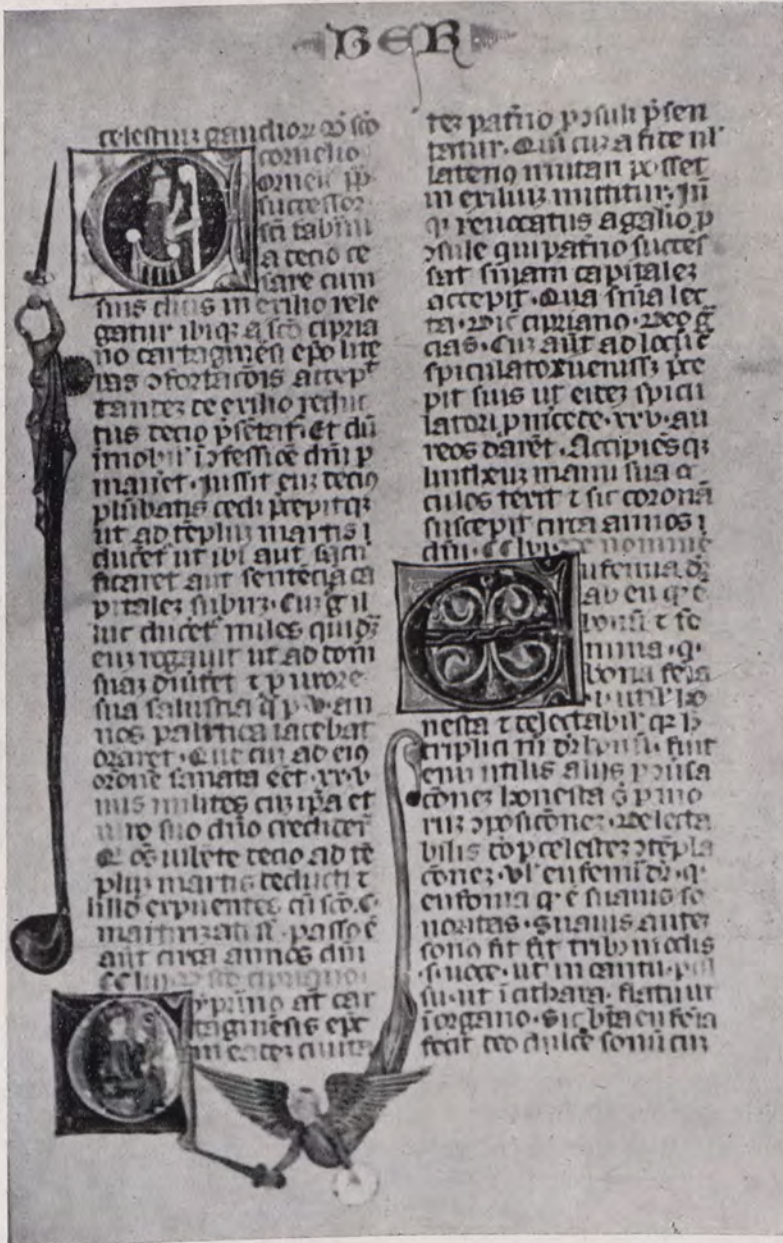 BER
celestiuz gaudior. de sco
cornelio.
Orneli pp
successor
sci fabiani
a decio ce
sare cum
suis clicis in exilio rele
gatur ibiqz a sco cipria
no cartaginesi epo lite
ras ofortacois accept
tandez de exilio reduc
tus decio psetat. Et du
imobil i ofessioe dni p
maneret. iussit euz decius
plubatis cedi precepitqz
ut ad tepluz martis
duceret ut ibi aut sacri
ficaret aut sentecia ca
pitalez subiret. Cuz g il
luc duceret miles quidaz
euz rogavit ut ad dom
suaz divertet t p uxore
sua salustia q p v. an
nos palitica iacebat
oraret. Que cuz ad eius
orone sanata eet. xx. v
nus milites cuz ipa et
viro suo dno crediderut
Q os iubete decio ad te
pluz martis deducti t
illud expuentes cu sco. C.
martirizati st. passo e
aut circa annos dni
cc liij. de sco cipriano
yprino at car
taginesis epc
in eadez civita
tez patrno psuli psen
tatur. Qui cuz a fide nl
latenus mutari posset
in exiliuz mittitur. In
q revocatus a galio p
osule qui patrno succes
serat sniam capitalez
accepit. Qua snia lec
ta. dic cipriano. deo g
cias. Cuz aut ad locuz
spiculator venisset pre
pit suis ut eidez spicu
latori p mcede. xxv. au
reos daret. Accipiesqz
lintheuz manu sua o
culos texit t sic corona
suscepit circa annos
dni. cc lvi. de nomine
ufemia dr
ab eu qd e
bonu t fe
mina. q.
bona feia
.i. utilis ho
nesta t delectabil. qz h
triplici m dr bonu. fuit
eniz utilis aliis p ovsa
conez honesta s p mo
ruz oposiconez. Delecta
bilis do p celestez otepla
conez. vl eufemi dr. q.
eufonia q e suavis so
noritas. Suavis autez
sono fit fit tribz modis
s. voce. ut in cantu. pul
su. ut i cithara. flatu ut
i organo. Sic bta eufeia
fecit deo dulce sonu cuz